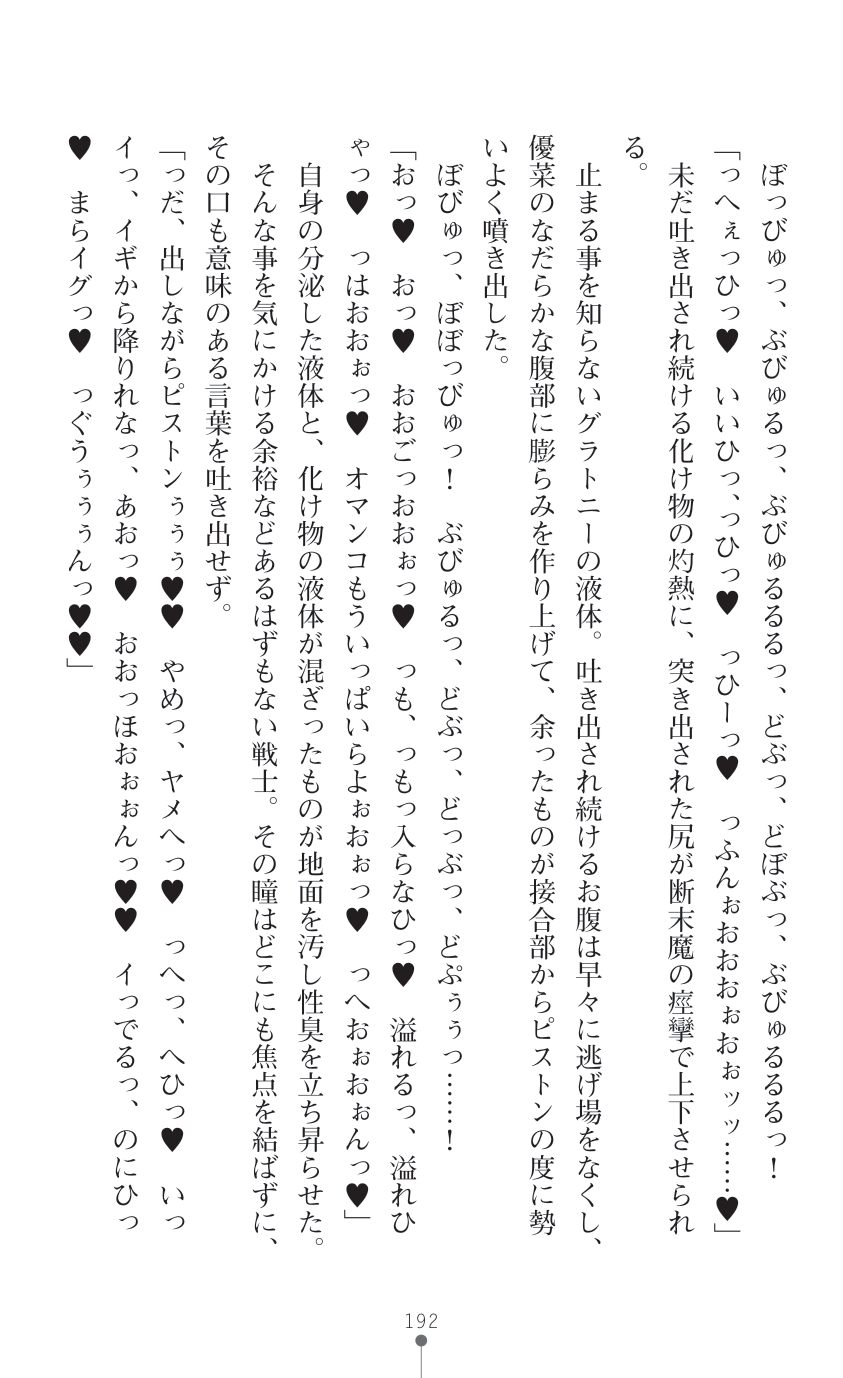 ぼっびゅっ、ぶびゅるっ、ぶびゅるるるっ、どぶっ、どぼぶっ、ぶびゅるるるっ！
「っへぇっひっ♥　いいひっ、っひっ♥　っひーっ♥　っふんぉおおおぉおぉッッ……♥」
未だ吐き出され続ける化け物の灼熱に、突き出された尻が断末魔の痙攣で上下させられ
る。
止まる事を知らないグラトニーの液体。吐き出され続けるお腹は早々に逃げ場をなくし、
優菜のなだらかな腹部に膨らみを作り上げて、余ったものが接合部からピストンの度に勢
いよく噴き出した。
ぼびゅっ、ぼぼっびゅっ！　ぶびゅるっ、どぶっ、どっぶっ、どぷぅぅっ……！
「おっ♥　おっ♥　おおごっおおぉっ♥　っも、っもっ入らなひっ♥　溢れるっ、溢れひ
ゃっ♥　っはおおぉっ♥　オマンコもういっぱいらよぉおぉっ♥　っへおぉおぉんっ♥」
自身の分泌した液体と、化け物の液体が混ざったものが地面を汚し性臭を立ち昇らせた。
そんな事を気にかける余裕などあるはずもない戦士。その瞳はどこにも焦点を結ばずに、
その口も意味のある言葉を吐き出せず。
「っだ、出しながらピストンぅぅぅ♥♥　やめっ、ヤメへっ♥　っへっ、へひっ♥　いっ
イっ、イギから降りれなっ、あおっ♥　おおっほおぉぉんっ♥♥　イっでるっ、のにひっ
♥　まらイグっ♥　っぐうぅぅぅんっ♥♥」
192